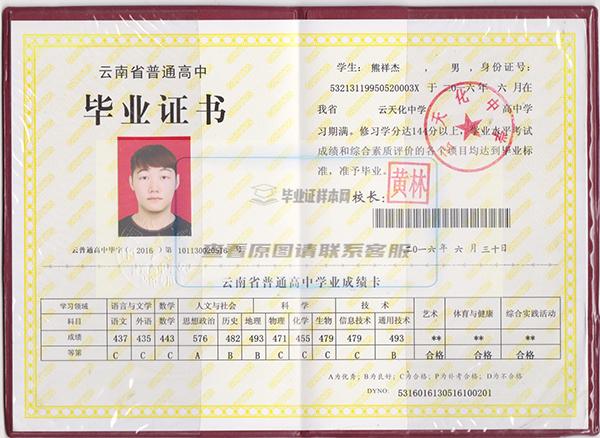 云南省普通高中
毕业证书
云普通高中毕字（ 2016 ）第 101130020516 号
学生：熊祥杰 ，男，身份证号：
53213119950520003X 于二○一六年 六 月在
我省 云天化中学 高中学
习期满。修习学分达144分以上，学业水平考试
成绩和综合素质评价的各个项目均达到毕业标
准，准予毕业。
校长：
黄林
云天化中学
二○一六年 六 月 三十日
毕业证样本网
查看原图请联系客服
云南省普通高中学业成绩卡
学习领域 语言与文学 数学 人文与社会 科 学 技 术 艺术 体育与健康 综合实践活动
科目 语文 外语 数学 思想政治 历史 地理 物理 化学 生物 信息技术 通用技术
成绩 437 435 443 576 482 493 471 455 479 479 493 ** ** **
等第 C C C A B B C C C C B 合格 合格 合格
A为优秀；B为良好；C为合格；P为补考合格；D为不合格
DYNO: 5316016130516100201